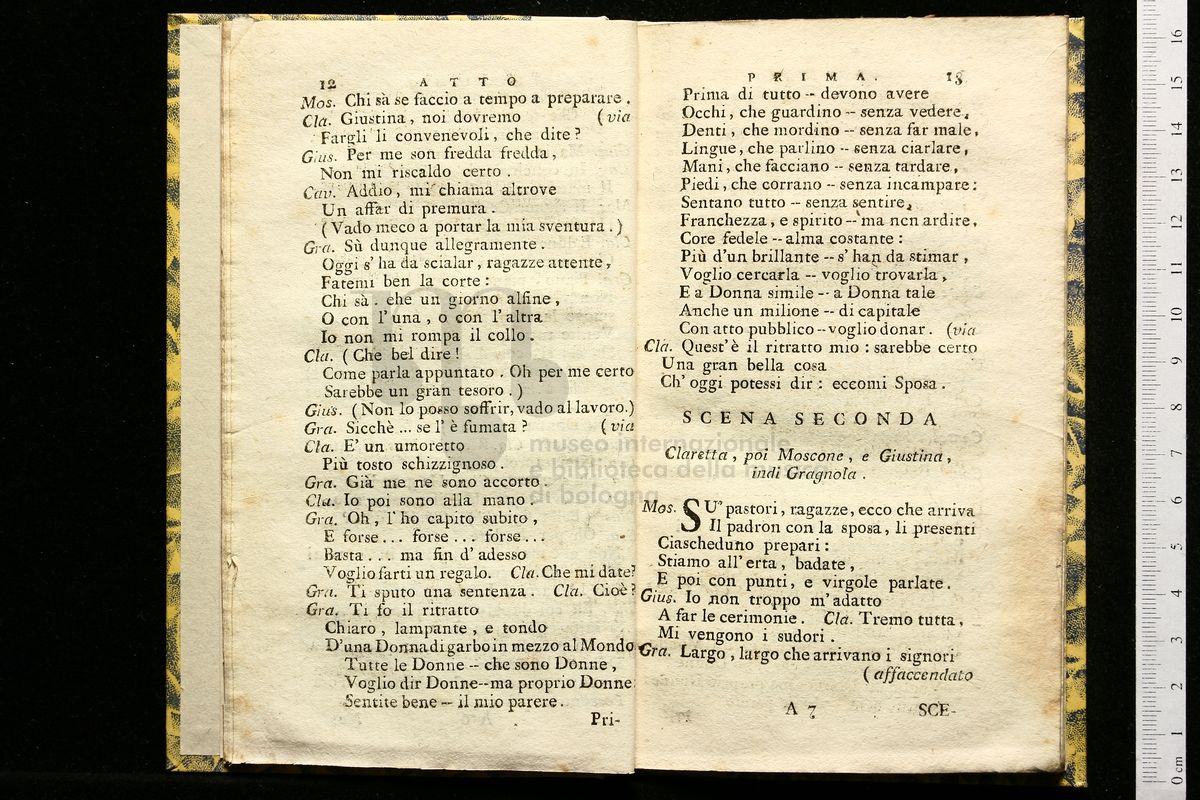 12 ATTO
Mos. Chi sà se faccio a tempo a preparare.
Cla. Giustina, noi dovremo (via
Fargli li convenevoli, che dite?
Gius. Per me son fredda fredda,
Non mi riscaldo certo.
Cav. Addio, mi chiama altrove
Un affar di premura.
(Vado meco a portar la mia sventura.)
Gra. Sù dunque allegramente.
Oggi s'ha da scialar, ragazze attente,
Fatemi ben la corte:
Chi sà. che un giorno alfine,
O con l'una, o con l'altra
Io non mi rompa il collo.
Cla. (Che bel dire!
Come parla appuntato. Oh per me certo
Sarebbe un gran tesoro.)
Gius. (Non lo posso soffrir, vado al lavoro.)
Gra. Sicchè ... se l'è fumata? (via
Cla. E' un umoretto
Più tosto schizzignoso.
Gra. Già me ne sono accorto.
Cla. Io poi sono alla mano.
Gra. Oh, l'ho capito subito,
E forse... forse... forse...
Basta... ma fin d'adesso
Voglio farti un regalo. Cla. Che mi date?
Gra. Ti sputo una sentenza. Cla. Cioè?
Gra. Ti fo il ritratto
Chiaro, lampante, e tondo
D'una Donna di garbo in mezzo al Mondo
Tutte le Donne -- che sono Donne,
Voglio dir Donne--ma proprio Donne
Sentite bene -- il mio parere.
Pri-
PRIMA. 13
Prima di tutto -- devono avere
Occhi, che guardino -- senza vedere,
Denti, che mordino -- senza far male,
Lingue, che parlino -- senza ciarlare,
Mani, che facciano -- senza tardare,
Piedi, che corrano -- senza incampare:
Sentano tutto -- senza sentire,
Franchezza, e spirito -- ma non ardire,
Core fedele -- alma costante:
Più d'un brillante -- s'han da stimar,
Voglio cercarla -- voglio trovarla,
E a Donna simile -- a Donna tale
Anche un milione -- di capitale
Con atto pubblico -- voglio donar. (via
Cla. Quest'è il ritratto mio: sarebbe certo
Una gran bella cosa
Ch'oggi potessi dir: eccomi Sposa.
SCENA SECONDA
Claretta, poi Moscone, e Giustina,
indi Gragnola.
Mos. SU' pastori, ragazze, ecco che arriva
Il padron con la sposa, li presenti
Ciascheduno prepari:
Stiamo all'erta, badate,
E poi con punti, e virgole parlate.
Gius. Io non troppo m'adatto
A far le cerimonie. Cla. Tremo tutta,
Mi vengono i sudori.
Gra. Largo, largo che arrivano i signori
(affaccendato
A 7 SCE-
museo internazionale
e biblioteca della musica
di bologna
0 cm 1 2 3 4 5 6 7 8 9 10 11 12 13 14 15 16